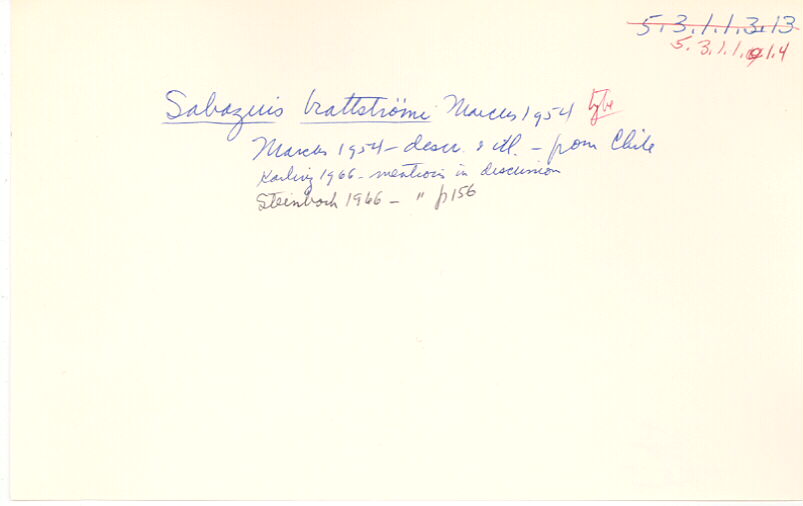 5.3.1.1.3.13
5.3.1.1.1.4
Sabazuis brattströmi Marcus 1954 type
Marcus 1954 - descr. & ill. - from Chile
Karling 1966 - mentions in discussion
Steinbock 1966 - " p156